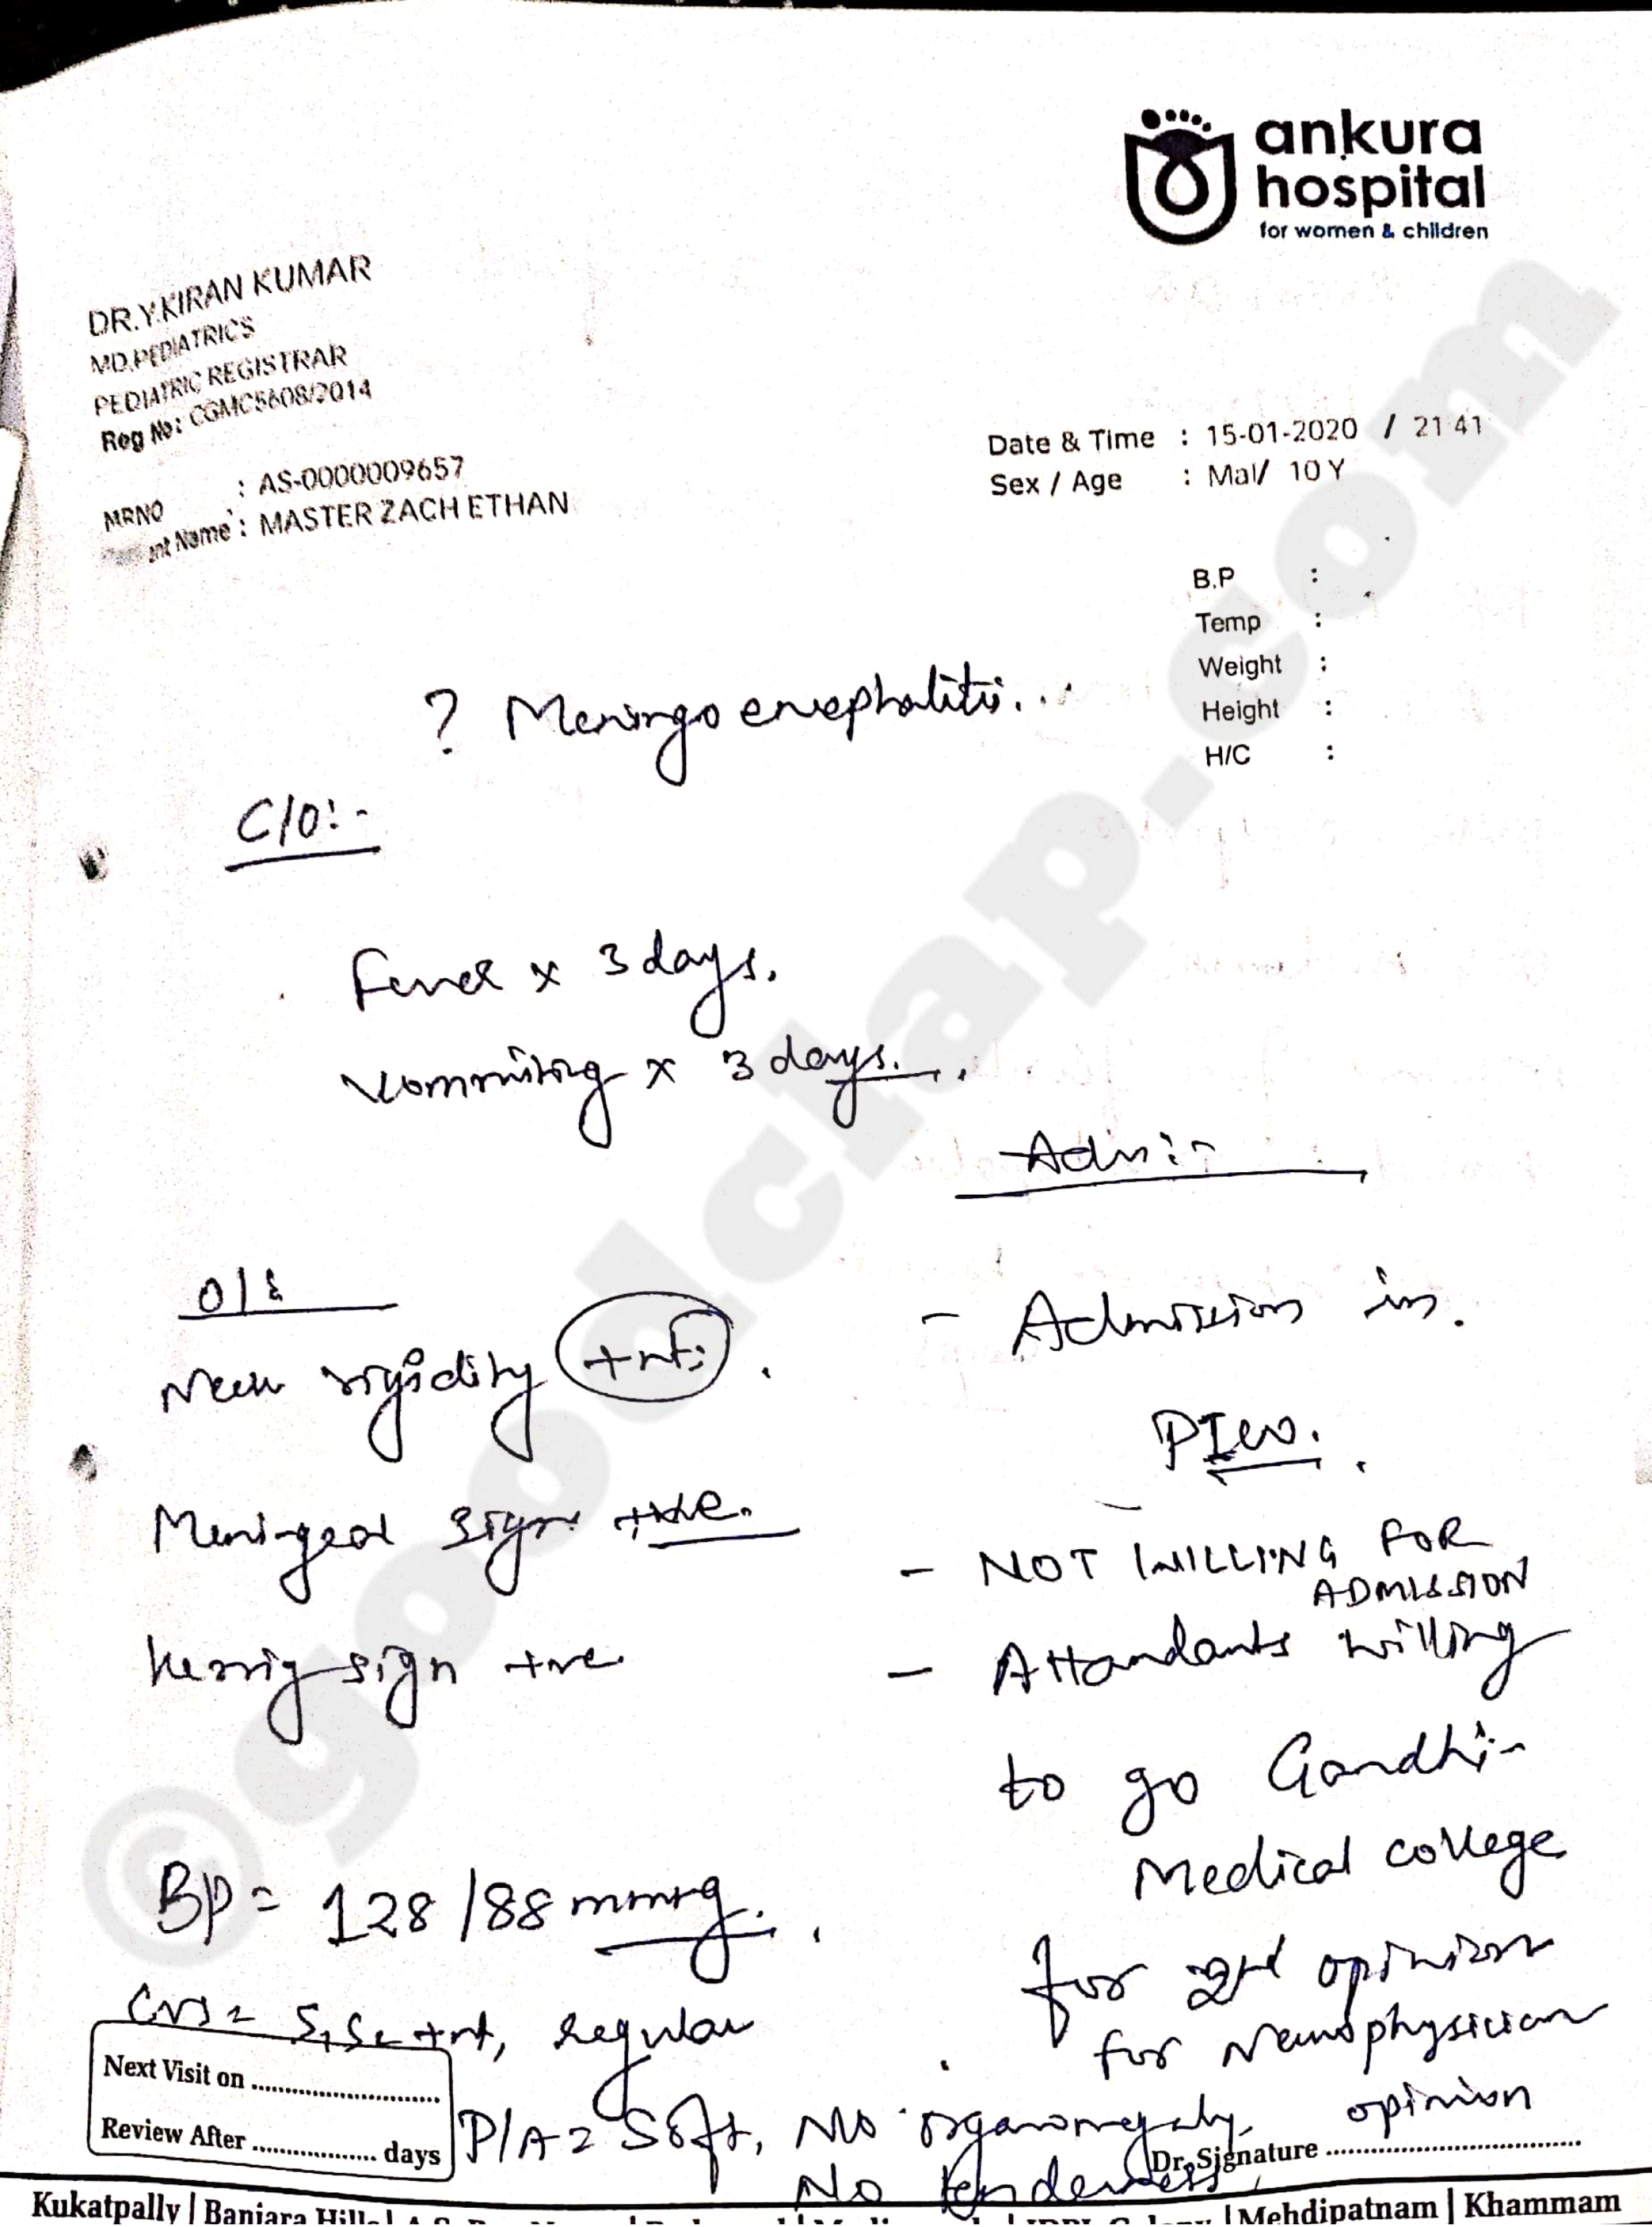 ankura
hospital
for women & children
DR.Y.KIRAN KUMAR
MD.PEDIATRICS
PEDIATRIC REGISTRAR
Reg No: CGMC5608/2014
MRNO : AS-0000009657
Name : MASTER ZACH ETHAN
Date & Time : 15-01-2020 / 21:41
Sex / Age : Mal/ 10 Y
B.P :
Temp :
Weight :
Height :
H/C :
? Meningoencephalitis...
C/O:-
Fever x 3 days.
Vommiting x 3 days.
Adv:-
O/E
Neck rigidity +nt.
Meningeal sign +ve.
Kernig sign +ve.
BP = 128/88 mmHg.
CVS = S1S2 +nt, Regular
P/A = Soft, No organomegaly.
No tenderness
- Admission in.
PICU.
- NOT WILLING FOR
ADMISSION
- Attandants willing
to go Gandhi-
Medical college
for 2nd opinion
for Neurophysician
opinion
Next Visit on
Review After days
Dr. Signature
Kukatpally | Banjara Hills | | Mehdipatnam | Khammam
©goodclap.com